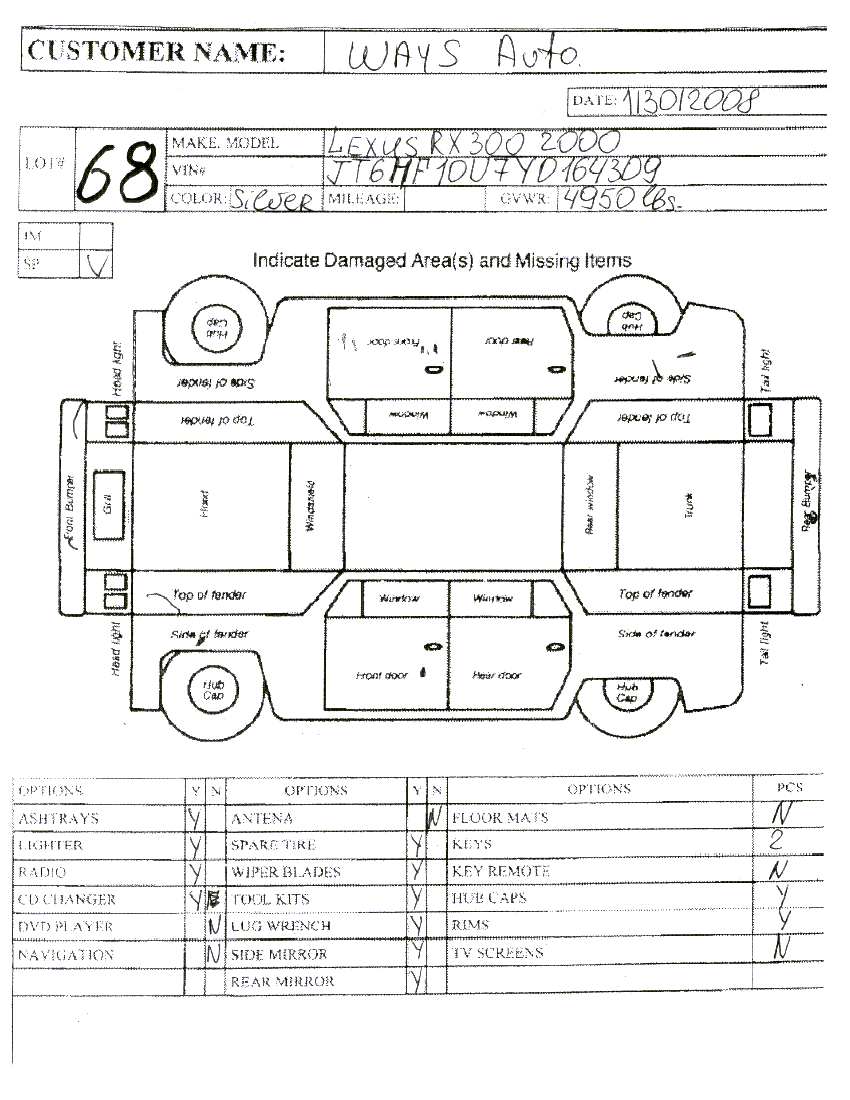 CUSTOMER NAME: WAYS Auto.
DATE: 1/30/2008
LOT# 68
MAKE. MODEL LEXUS RX300 2000
VIN# JT6HF10U7YD164309
COLOR: Silver MILEAGE: GVWR: 4950 lbs.
IM
SP V
Indicate Damaged Area(s) and Missing Items
Hub Cap Hub Cap
Head light Side of fender Front door Rear door Side of fender Tail light
Top of fender Window Window Top of fender
Front Bumper Grill Hood Windshield Rear window Trunk Rear Bumper
Top of fender Window Window Top of fender
Head light Side of fender Side of fender Tail light
Front door Rear door
Hub Cap Hub Cap
OPTIONS Y N OPTIONS Y N OPTIONS PCS
ASHTRAYS Y ANTENA N FLOOR MATS N
LIGHTER Y SPARE TIRE Y KEYS 2
RADIO Y WIPER BLADES Y KEY REMOTE N
CD CHANGER Y TOOL KITS Y HUB CAPS Y
DVD PLAYER N LUG WRENCH Y RIMS Y
NAVIGATION N SIDE MIRROR Y TV SCREENS N
REAR MIRROR Y